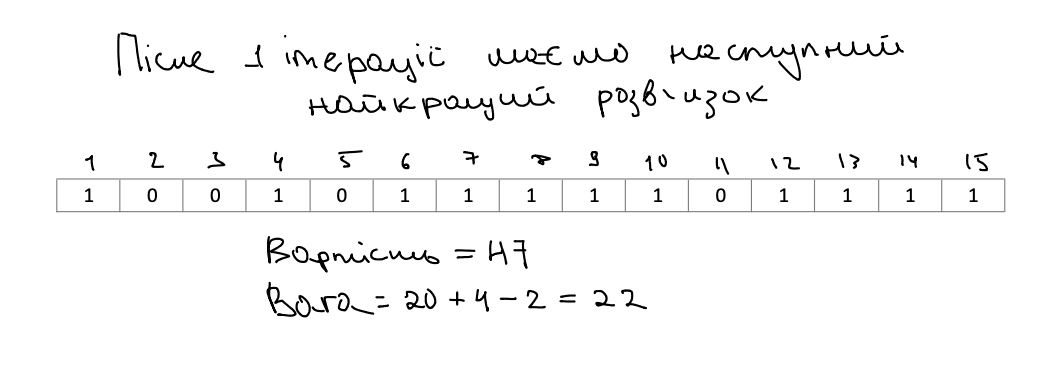 Після 1 ітерації маємо наступний
найкращий розв'язок
1 2 3 4 5 6 7 8 9 10 11 12 13 14 15
1 0 0 1 0 1 1 1 1 1 0 1 1 1 1
Вартість = 47
Вага = 20 + 4 - 2 = 22